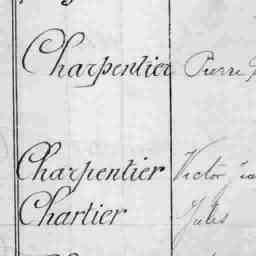 Charpentier Pierre
Charpentier Victor
Chartier Jules